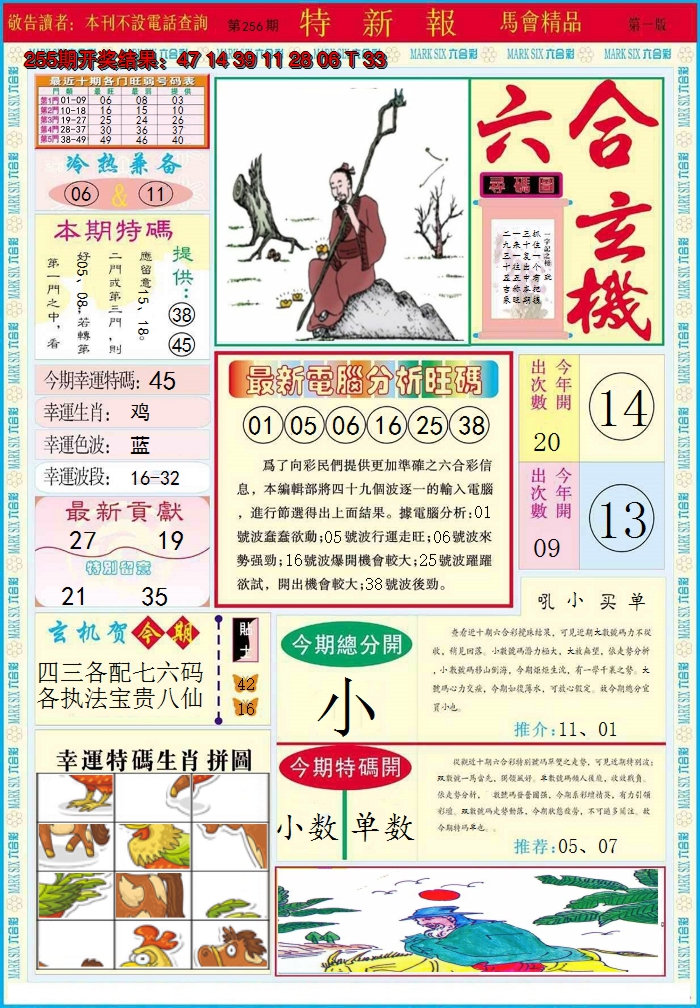 敬告讀者：本刊不設電話查詢 第256期 特新報 馬會精品 第一版
MARK SIX 六合彩
255期开奖结果：47 14 39 11 28 06 T 33
最近十期各门旺弱号码表
門類 最旺 最弱 提供
第1門 01-09 06 08 03
第2門 10-18 16 15 10
第3門 19-27 25 24 26
第4門 28-37 30 36 37
第5門 38-49 49 46 40
冷热兼备
06 & 11
本期特碼
提供：
38
45
應留意15、18。
二門或第三門，則
好05、08。若轉第
第一門之中，看
六合玄機
尋碼圖
一字記之曰：玩
抓住一个有把握
三十复出中本期
一来一往五称旺
二九三十五吉来
今期幸運特碼：45
幸運生肖：鸡
幸運色波：蓝
幸運波段：16=32
最新貢獻
27 19
特别留意
21 35
最新電腦分析旺碼
01 05 06 16 25 38
爲了向彩民們提供更加準確之六合彩信
息，本編輯部將四十九個波逐一的輸入電腦
，進行節選得出上面結果。據電腦分析：01
號波蠢蠢欲動；05號波行運走旺；06號波來
勢强勁；16號波爆開機會較大；25號波躍躍
欲試，開出機會較大；38號波後勁。
今年開
出次數
20
14
今年開
出次數
09
13
玄机贺今期
四三各配七六码
各执法宝贵八仙
貼士
42
16
今期總分開
小
吼小买单
查看近十期六合彩攪珠結果，可見近期大數號碼力不從
收，稍見回落。小數號碼潛力極大，大放無望，依走勢分析
，小數號碼移山倒海，今期炬炬生沈，有一學千裏之勢。大
號碼心力交瘁，今期如復薄水，可放心假定。故今期總分宜
買小也。
推介：11、01
今期特碼開
小数 单数
從觀近十期六合彩特别號碼單雙之走勢，可見近期特别波；
双數號一馬當先，開領風好。单數號碼頻人後塵，收效戰負。
依走勢分析，数號碼晉臺國强，今期系彩增精装，有力引領
彩壇。双數號碼走勢動落，今期狀態疲勞，不可過多關注。故
今期特碼单也。
推荐：05、07
幸運特碼生肖拼圖